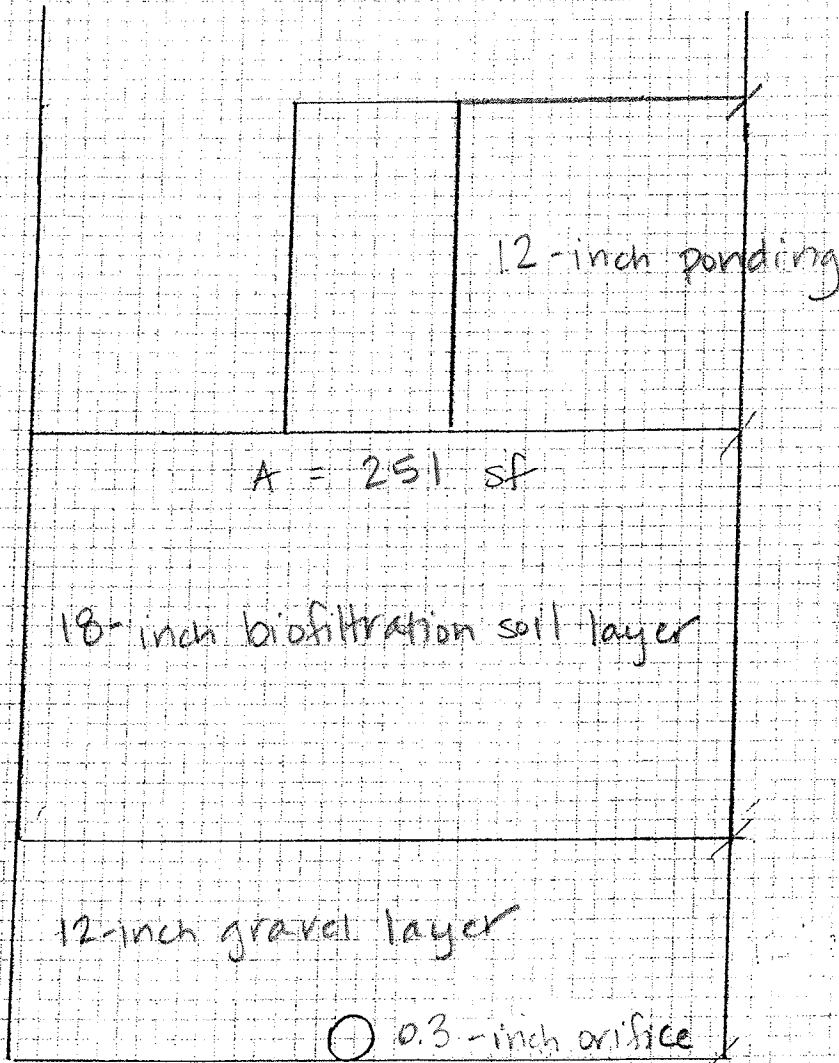 12-inch ponding
A = 251 sf
18-inch biofiltration soil layer
12-inch gravel layer
0.3-inch orifice